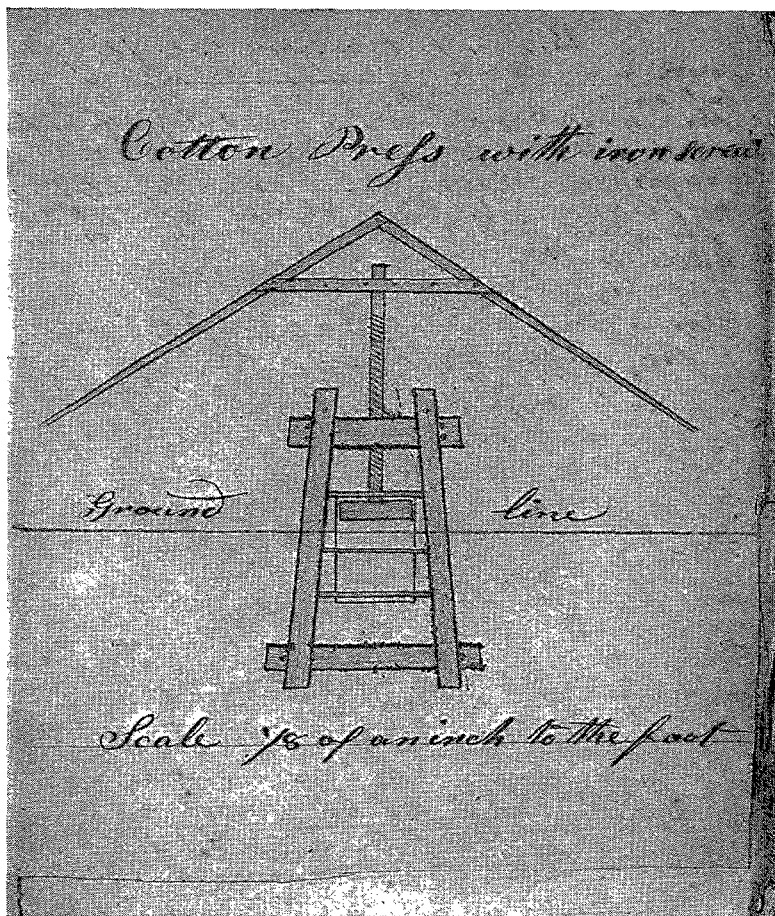 Cotton Preſs with iron screw
Ground line
Scale 1/8 of an inch to the foot